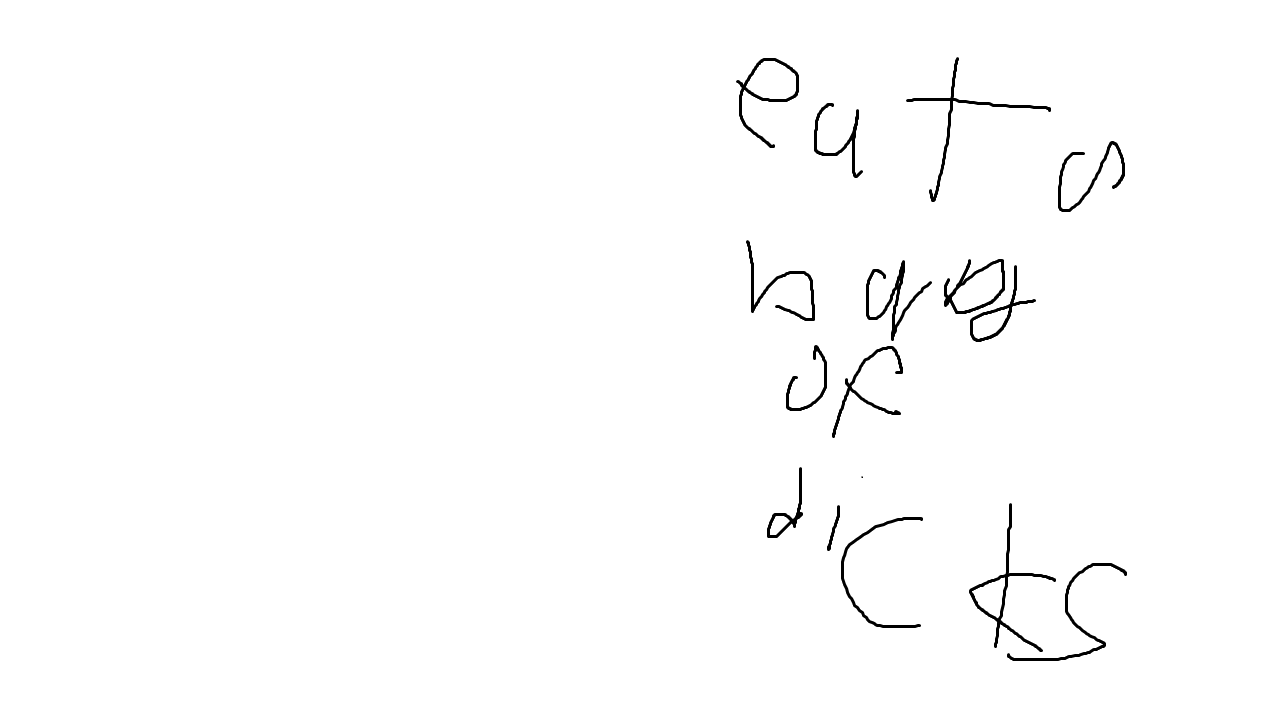 eats
bags
of
dicks